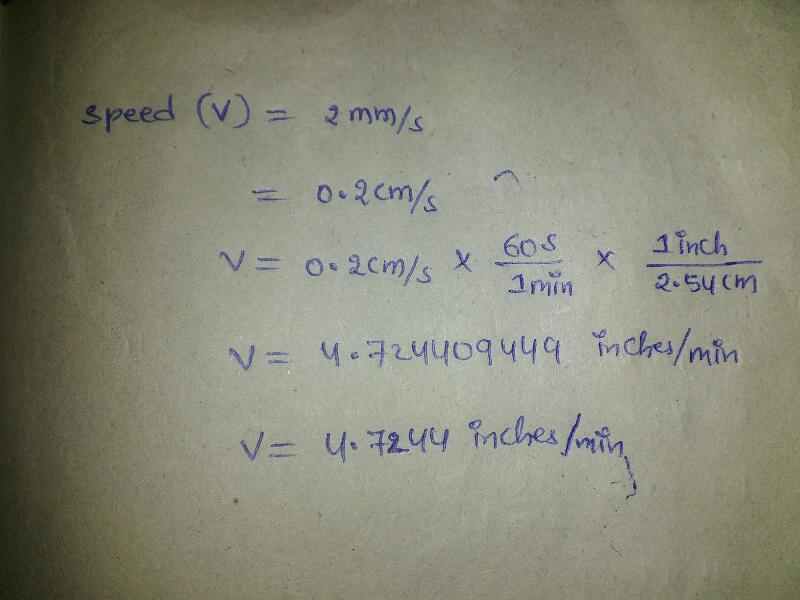 speed (V) = 2 mm/s
= 0.2 cm/s
V = 0.2 cm/s × 60 s / 1 min × 1 inch / 2.54 cm
V = 4.724409449 inches/min
V = 4.7244 inches/min